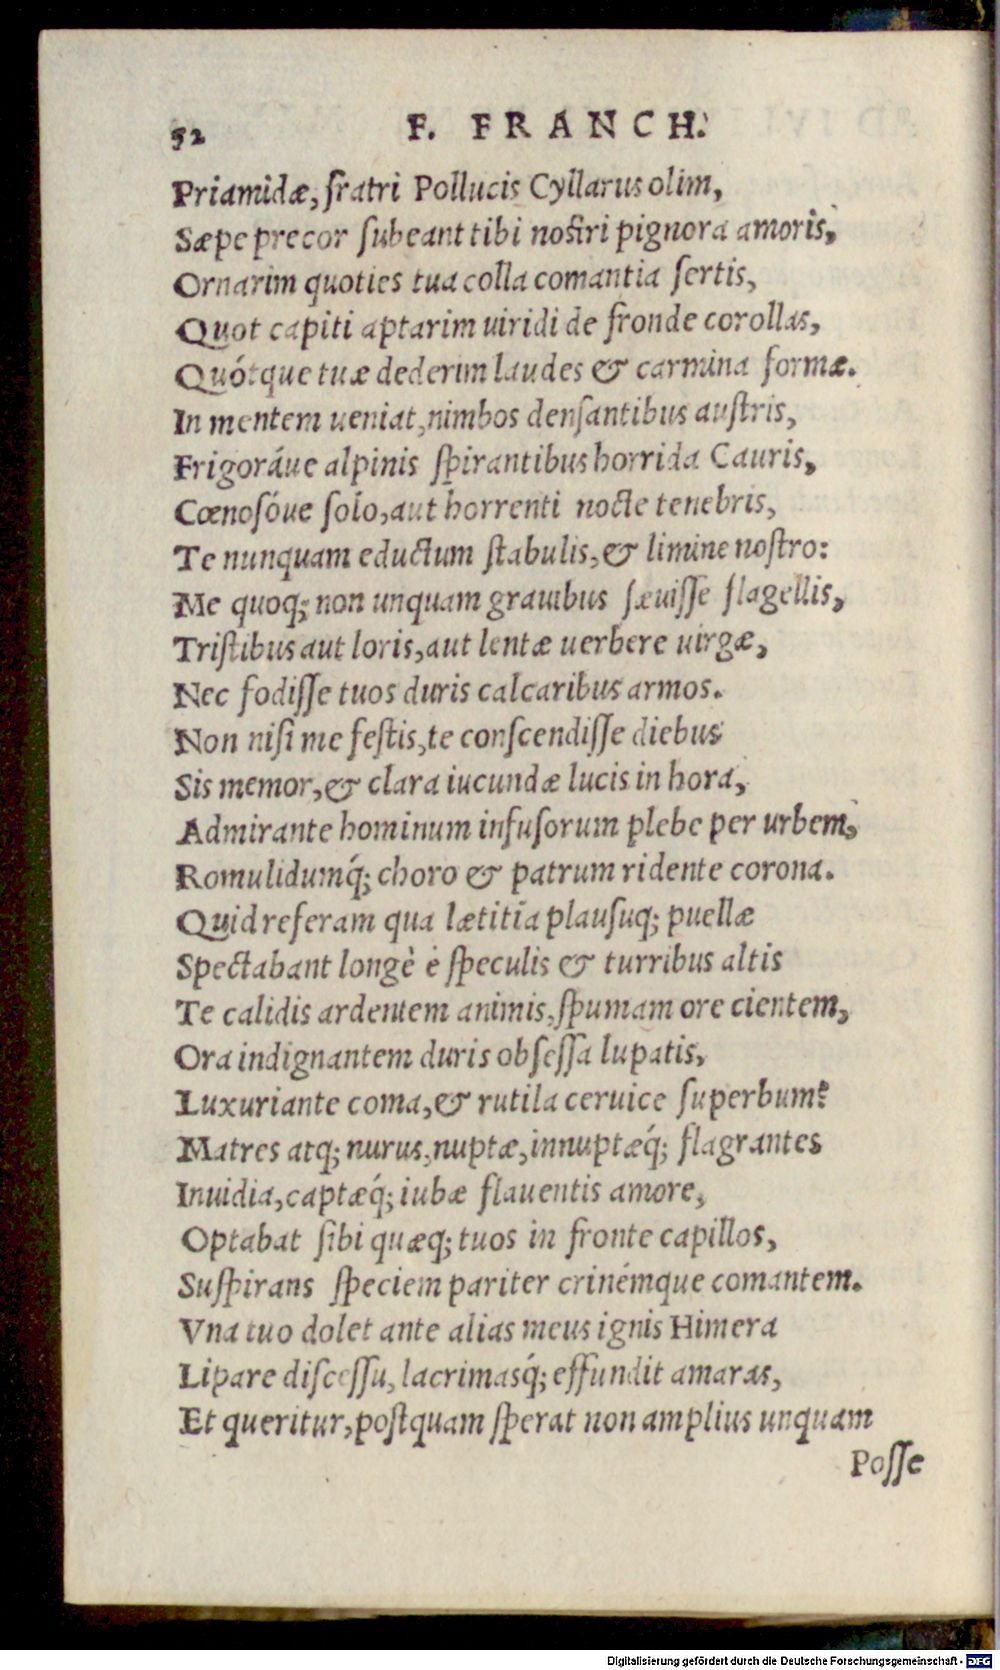 52 F. FRANCH.
Priamidæ, fratri Pollucis Cyllarus olim,
Sæpe precor ſubeant tibi noſtri pignora amoris,
Ornarim quoties tua colla comantia ſertis,
Quot capiti aptarim uiridi de fronde corollas,
Quótque tuæ dederim laudes & carmina formæ.
In mentem ueniat, nimbos denſantibus auſtris,
Frigoráue alpinis ſpirantibus horrida Cauris,
Cœnoſóue ſolo, aut horrenti nocte tenebris,
Te nunquam eductum ſtabulis, & limine noſtro:
Me quoq; non unquam grauibus ſæuiſſe flagellis,
Triſtibus aut loris, aut lentæ uerbere uirgæ,
Nec fodiſſe tuos duris calcaribus armos.
Non niſi me feſtis, te conſcendiſſe diebus
Sis memor, & clara iucundæ lucis in hora,
Admirante hominum infuſorum plebe per urbem,
Romulidumq́; choro & patrum ridente corona.
Quid referam qua lætitia plauſuq; puellæ
Spectabant longè è ſpeculis & turribus altis
Te calidis ardentem animis, ſpumam ore cientem,
Ora indignantem duris obſeſſa lupatis,
Luxuriante coma, & rutila ceruice ſuperbum?
Matres atq; nurus, nuptæ, innuptæq́; flagrantes
Inuidia, captæq́; iubæ flauentis amore,
Optabat ſibi quæq; tuos in fronte capillos,
Suſpirans ſpeciem pariter crinémque comantem.
Vna tuo dolet ante alias meus ignis Himera
Lipare diſceſſu, lacrimasq́; effundit amaras,
Et queritur, poſtquam ſperat non amplius unquam
Poſſe
Digitalisierung gefördert durch die Deutsche Forschungsgemeinschaft - DFG